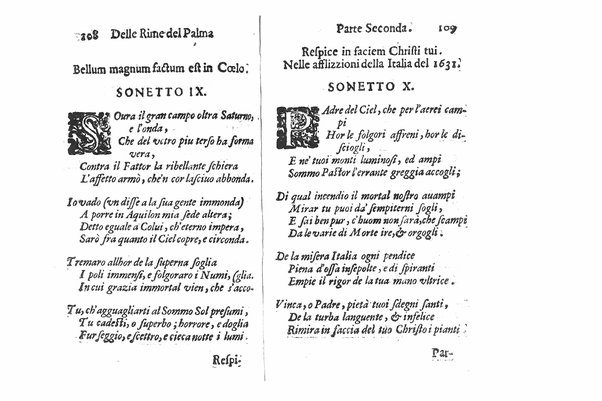 108 Delle Rime del Palma
Bellum magnum factum est in Cœlo.
SONETTO IX.
SOura il gran campo oltra Saturno,
e l'onda,
Che del vetro piu terso ha forma
vera,
Contra il Fattor la ribellante schiera
L'affetto armò, che'n cor lasciuo abbonda.
Io vado (vn disse a la sua gente immonda)
A porre in Aquilon mia sede altera;
Detto eguale a Colui, ch'eterno impera,
Sarò fra quanto il Ciel copre, e circonda.
Tremaro allhor de la superna soglia
I poli immensi, e folgoraro i Numi, (glia.
In cui grazia immortal vien, che s'acco-
Tu, ch'agguagliarti al Sommo Sol presumi,
Tu cadesti, o superbo; horrore, e doglia
Fur seggio, e scettro, e cieca notte i lumi.
Respi-
Parte Seconda. 109
Respice in faciem Christi tui.
Nelle afflizzioni della Italia del 1631.
SONETTO X.
PAdre del Ciel, che per l'aerei cam-
pi
Hor le folgori affreni, hor le di-
sciogli,
E ne' tuoi monti luminosi, ed ampi
Sommo Pastor l'errante greggia accogli;
Di qual incendio il mortal nostro auampi
Mirar tu puoi da' sempiterni sogli,
E sai ben pur, c'huom non sarà, che scampi
Da le varie di Morte ire, & orgogli.
De la misera Italia ogni pendice
Piena d'ossa insepolte, e di spiranti
Empie il rigor de la tua mano vltrice.
Vinca, o Padre, pietà tuoi sdegni santi,
De la turba languente, & infelice
Rimira in faccia del tuo Christo i pianti
Par-